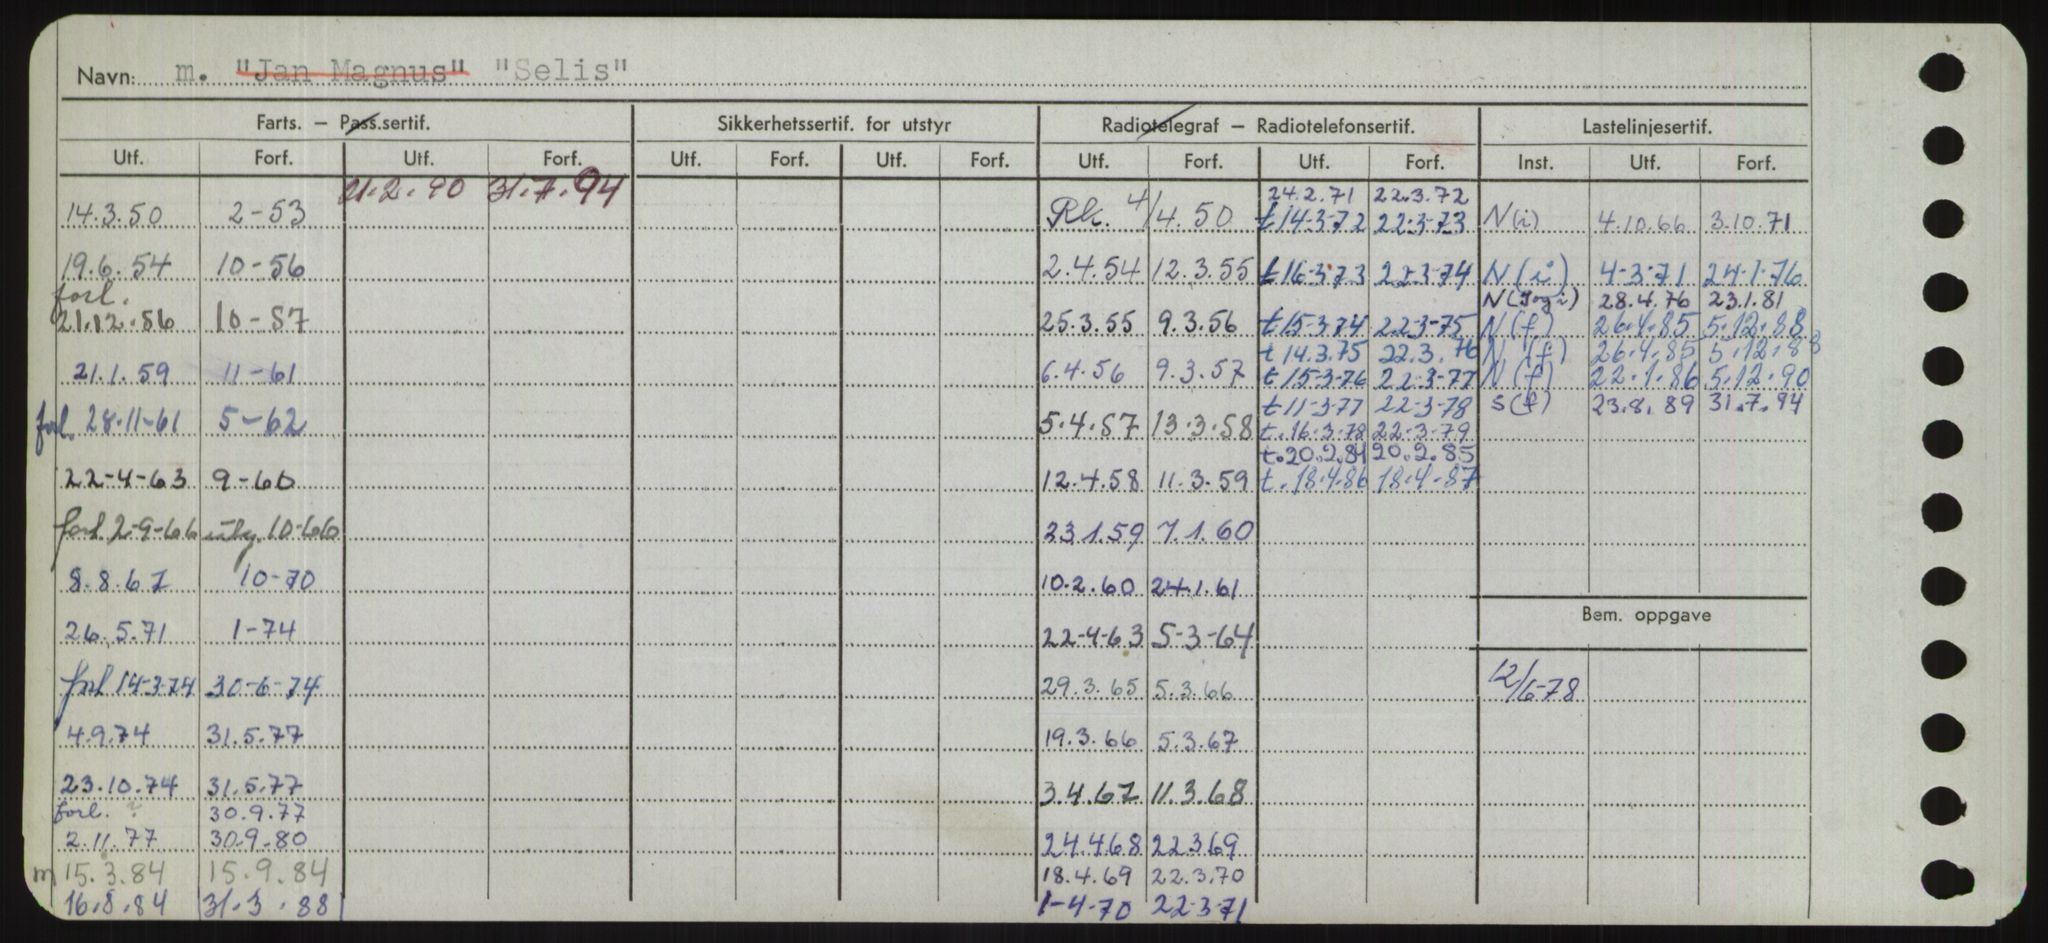 Navn: m. "Jan Magnus" "Selis"
Farts. — Pass.sertif. Sikkerhetssertif. for utstyr Radiotelegraf — Radiotelefonsertif. Lastelinjesertif.
Utf. Forf. Utf. Forf. Utf. Forf. Utf. Forf. Utf. Forf. Utf. Forf. Inst. Utf. Forf.
21.2.90 31.7.94 24.2.71 22.3.72
14.3.50 2-53 Rk. 4/4.50 t 14-3-72 22-3-73 N(i) 4.10.66 3.10.71
19.6.54 10-56 2.4.54 12.3.55 t 16-3-73 22-3-74 N(i) 4-3-71 24-1-76
forl. N( ) 28.4.76 23.1.81
21.12.56 10-57 25.3.55 9.3.56 t 15-3-74 22-3-75 N(f) 26.4.85 5.12.88
t 14.3.75 22.3.76 N(f) 26.4.85 5.12.88
21.1.59 11-61 6.4.56 9.3.57 t 15-3-76 22-3-77 N(f) 22.1.86 5.12.90
t 11-3-77 22-3-78 S(f) 23.8.89 31.7.94
forl. 28.11-61 5-62 5.4.57 13.3.58 t. 16-3-78 22-3-79
t. 20.2.84 20.2.85
22-4-63 9-66 12.4.58 11.3.59 t. 18.4.86 18.4.87
forl. 2-9-66 utg. 10-66 23.1.59 7.1.60
8.8.67 10-70 10.2.60 24.1.61
Bem. oppgave
26.5.71 1-74 22-4-63 5-3-64
forl 14-3-74 30-6-74 29.3.65 5.3.66 12/6-78
4.9.74 31.5.77 19.3.66 5.3.67
23.10.74 31.5.77 3.4.67 11.3.68
forl. ? 30.9.77
2.11.77 30.9.80 24.4.68 22.3.69
m 15.3.84 15.9.84 18.4.69 22.3.70
16.8.84 31.3.88 1-4-70 22-3-71